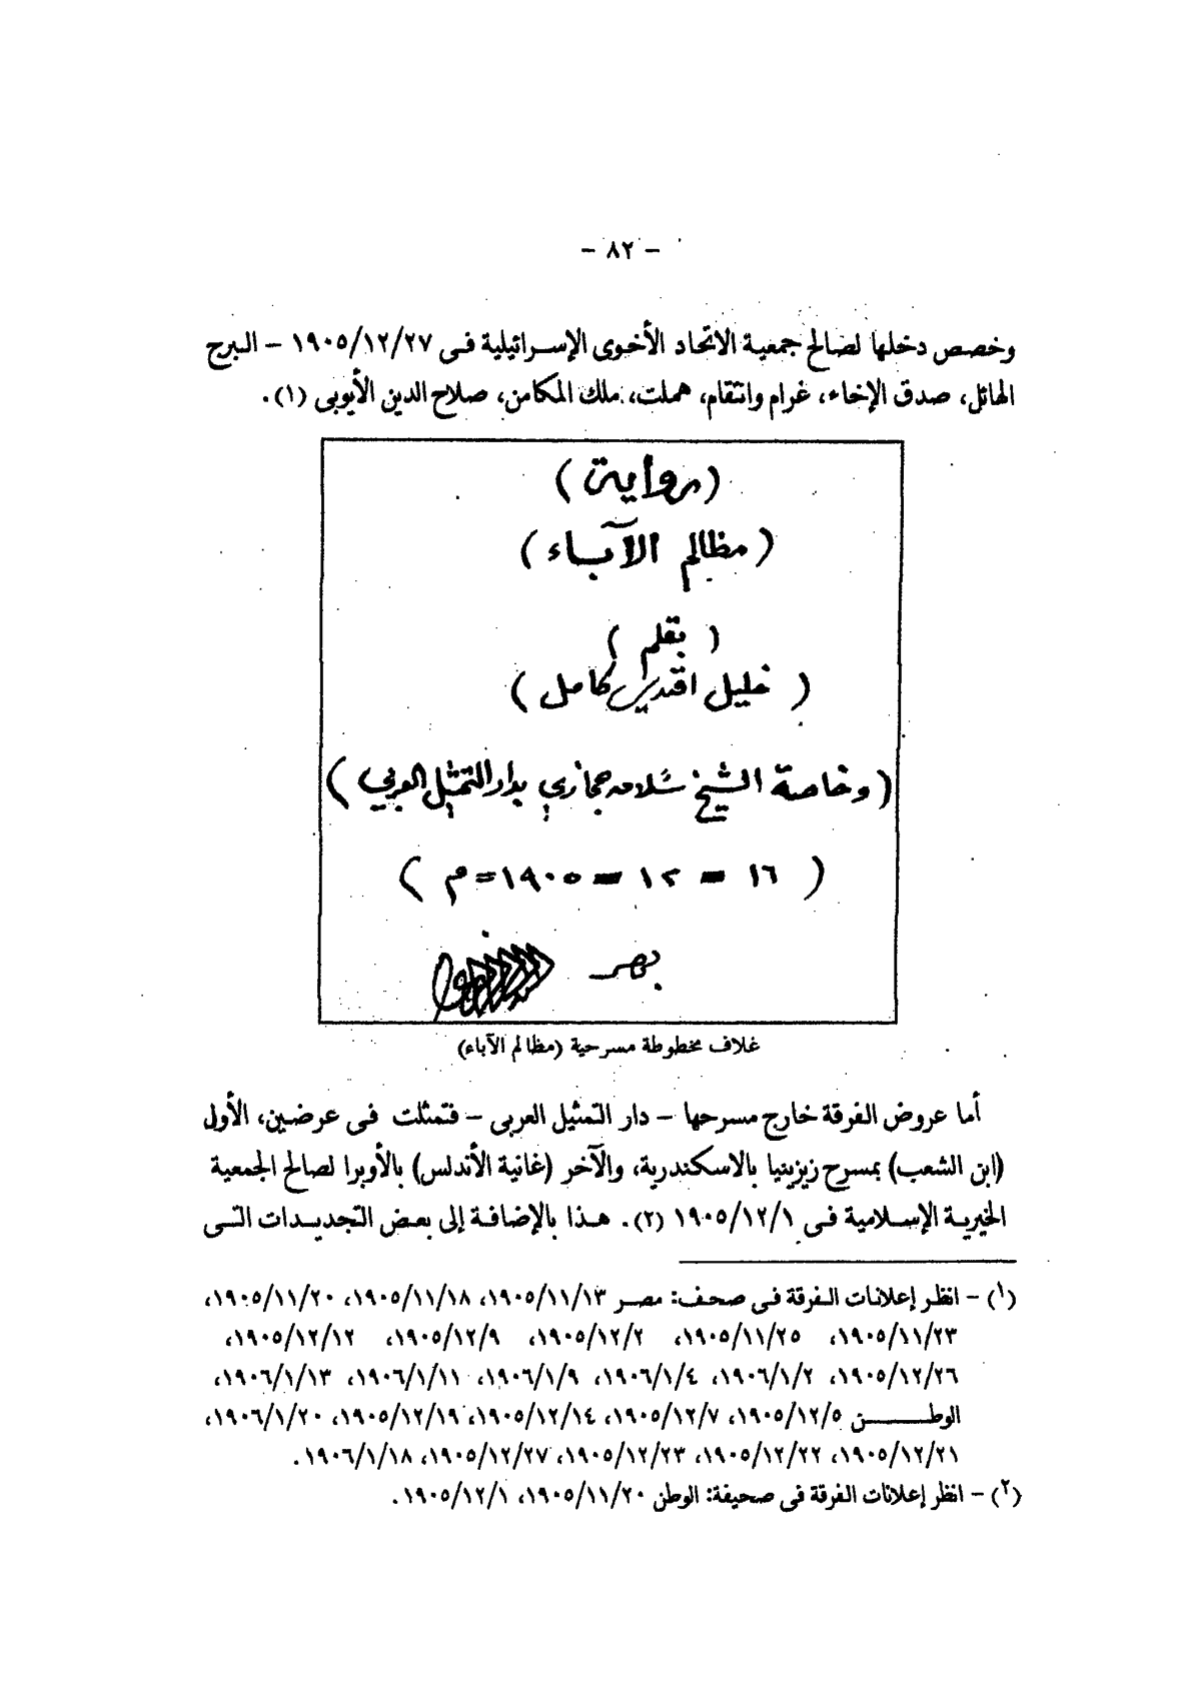 - ٨٢ -
وخصص دخلها لصالح جمعية الاتحاد الأخوى الإسرائيلية فى ١٩٠٥/١٢/٢٧ - البرج
الهائل، صدق الإخاء، غرام وانتقام، هملت، ملك المكامن، صلاح الدين الأيوبى (١).
(رواية)
(مظالم الآباء)
(بقلم)
(خليل افندي كامل)
(وخاصة الشيخ سلامه حجازي بدار التمثيل العربي)
(١٦ - ١٢ - ١٩٠٥ = م)
بمصر
غلاف مخطوطة مسرحية (مظالم الآباء)
أما عروض الفرقة خارج مسرحها - دار التمثيل العربى - فتمثلت فى عرضين، الأول
(ابن الشعب) بمسرح زيزينيا بالاسكندرية، والآخر (غانية الأندلس) بالأوبرا لصالح الجمعية
الخيرية الإسلامية فى ١٩٠٥/١٢/١ (٢). هذا بالإضافة إلى بعض التجديدات التى
(١) - انظر إعلانات الفرقة فى صحف: مصر ١٩٠٥/١١/١٣، ١٩٠٥/١١/١٨، ١٩٠٥/١١/٢٠،
١٩٠٥/١١/٢٣، ١٩٠٥/١١/٢٥، ١٩٠٥/١٢/٢، ١٩٠٥/١٢/٩، ١٩٠٥/١٢/١٢،
١٩٠٥/١٢/٢٦، ١٩٠٦/١/٢، ١٩٠٦/١/٤، ١٩٠٦/١/٩، ١٩٠٦/١/١١، ١٩٠٦/١/١٣،
الوطن ١٩٠٥/١٢/٥، ١٩٠٥/١٢/٧، ١٩٠٥/١٢/١٤، ١٩٠٥/١٢/١٩، ١٩٠٦/١/٢٠،
١٩٠٥/١٢/٢١، ١٩٠٥/١٢/٢٢، ١٩٠٥/١٢/٢٣، ١٩٠٥/١٢/٢٧، ١٩٠٦/١/١٨.
(٢) - انظر إعلانات الفرقة فى صحيفة: الوطن ١٩٠٥/١١/٢٠، ١٩٠٥/١٢/١.